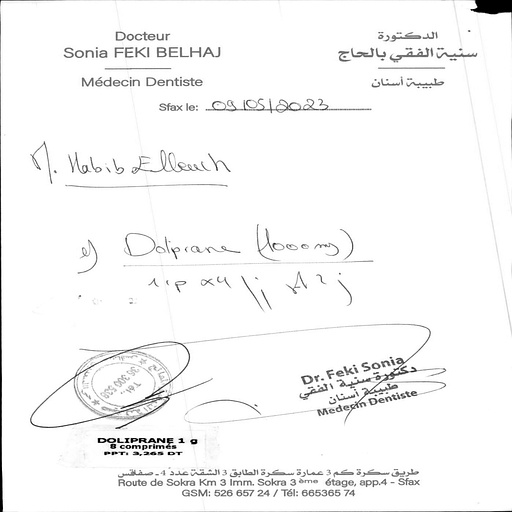 Docteur
Sonia FEKI BELHAJ
Médecin Dentiste
الدكتورة
سنية الفقي بالحاج
طبيبة أسنان
Sfax le: 09/05/2023
M. Habib Elleuch
Doliprane (1000mg)
1cp x4/j
Dr. Feki Sonia
دكتورة سنية الفقي
طبيبة أسنان
Medecin Dentiste
DOLIPRANE 1 g
8 comprimés
PPT: 3,265 DT
طريق سكرة كم 3 عمارة سكرة الطابق 3 الشقة عدد 4 - صفاقس
Route de Sokra Km 3 Imm. Sokra 3 ème étage, app.4 - Sfax
GSM: 526 657 24 / Tél: 665365 74